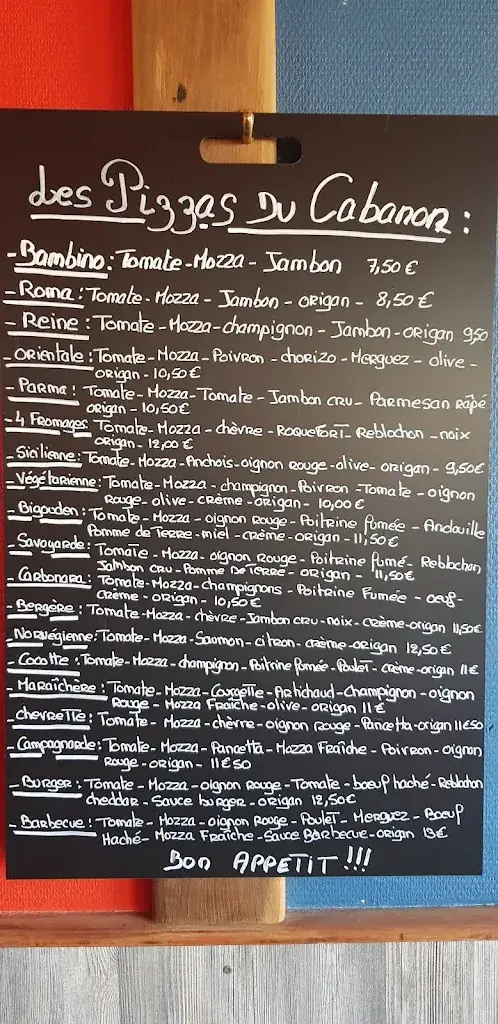 Les Pizzas Du Cabanon :
- Bambino : Tomate - Mozza - Jambon 7,50 €
- Roma : Tomate - Mozza - Jambon - origan - 8,50 €
- Reine : Tomate - Mozza - champignon - Jambon - origan 9,50
- Orientale : Tomate - Mozza - Poivron - chorizo - Merguez - olive -
origan - 10,50 €
- Parma : Tomate - Mozza - Tomate - Jambon cru - Parmesan Râpé
origan - 10,50 €
- 4 Fromages Tomate - Mozza - chèvre - Roquefort - Reblochon - noix
origan - 12,00 €
- Sicilienne : Tomate - Mozza - Anchois - oignon Rouge - olive - origan - 9,50 €
- Végétarienne : Tomate - Mozza - champignon - Poivron - Tomate - oignon
Rouge - olive - crème - origan - 10,00 €
- Bigouden : Tomate - Mozza - oignon Rouge - Poitrine fumée - Andouille
Pomme de Terre - miel - crème - origan - 11,50 €
- Savoyarde : Tomate - Mozza - oignon Rouge - Poitrine fumé - Reblochon
Jambon cru - Pomme De Terre - origan - 11,50 €
- Carbonara : Tomate - Mozza - champignons - Poitrine Fumée - oeuf -
crème - origan - 10,50 €
- Bergère : Tomate - Mozza - chèvre - Jambon cru - noix - crème - origan 11,50 €
- Norvégienne : Tomate - Mozza - Saumon - citron - crème - origan 12,50 €
- Cocotte : Tomate - Mozza - champignon - Poitrine fumée - Poulet - crème - origan 11 €
- Maraîchère : Tomate - Mozza - Courgette - Artichaud - Champignon - oignon
Rouge - Mozza Fraîche - olive - origan 11 €
- chevrette : Tomate - Mozza - chèvre - oignon Rouge - Pancetta - origan 11€50
- Campagnarde : Tomate - Mozza - Pancetta - Mozza Fraîche - Poivron - oignon
Rouge - origan - 11€50
- Burger : Tomate - Mozza - oignon Rouge - Tomate - boeuf haché - Reblochon
cheddar - Sauce burger - origan 12,50 €
- Barbecue : Tomate - Mozza - oignon Rouge - Poulet - Merguez - Boeuf
Haché - Mozza Fraîche - Sauce Barbecue - origan 13 €
Bon APPETIT !!!